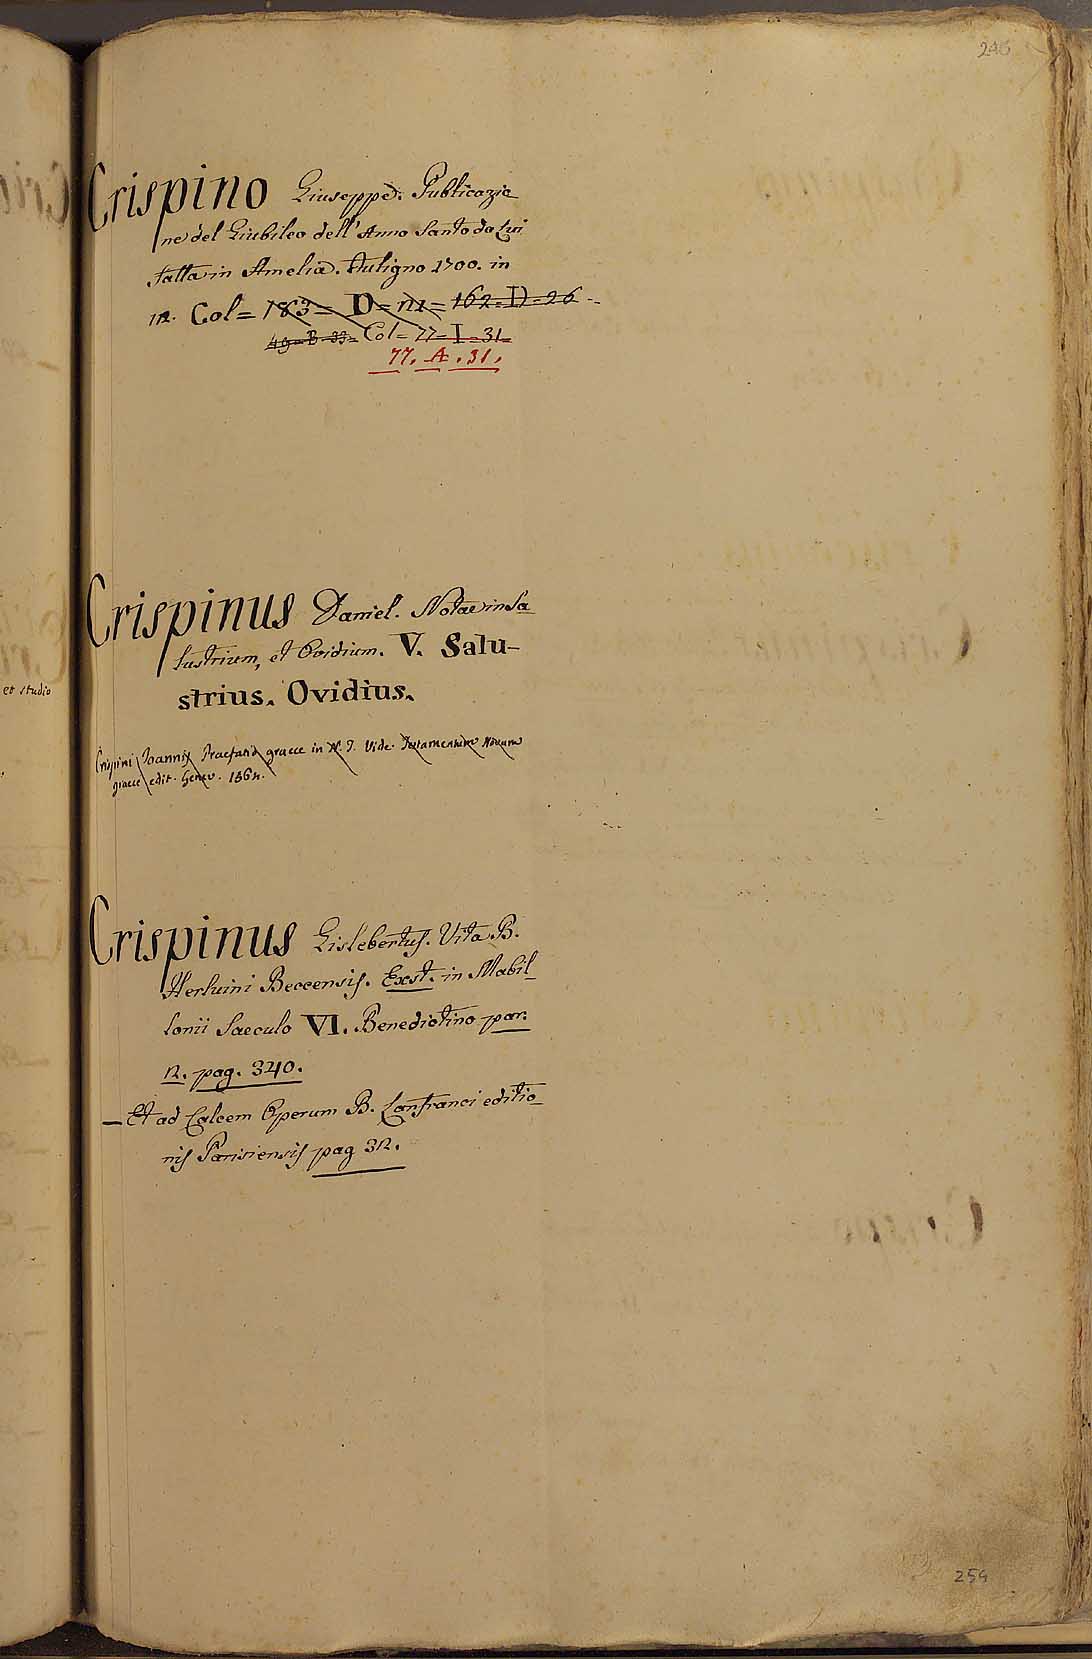 246
Crispino Giuseppe. Publicazio
ne del Giubileo dell' Anno Santo da Lui
fatta in Amelia. Fuligno 1700. in
12. Col = 183 = D = 12 = 162 = D = 26 -
49 = B = 33 = Col = 77 = I = 31 =
77. A. 31.
Crispinus Daniel. Notae in Sa
lustrium, et Ovidium. V. Salu-
strius. Ovidius.
et studio
Crispini Joannis Praefatio graece in N. T. Vide Testamentum Novum
graece edit. Genev. 1564.
Crispinus Gislebertus. Vita B.
Herluini Beccensis. Exst. in Mabil
lonii Saeculo VI. Benedictino par.
2. pag. 340.
— Et ad Calcem Operum B. Lanfranci editio
nis Parisiensis pag 32.
254